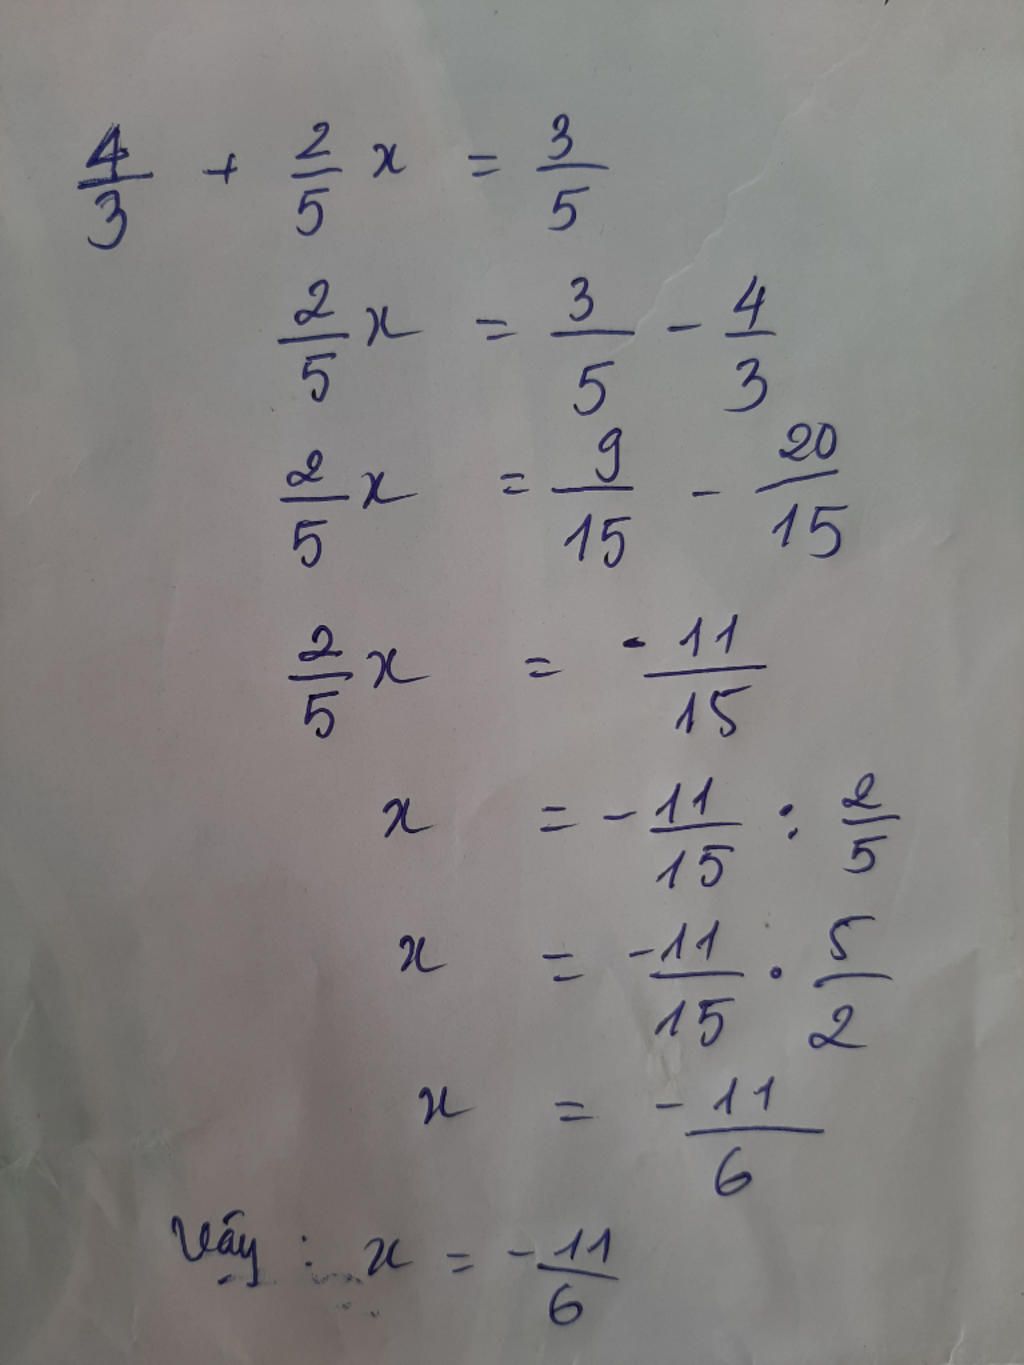 4/3 + 2/5 x = 3/5
2/5 x = 3/5 - 4/3
2/5 x = 9/15 - 20/15
2/5 x = -11/15
x = -11/15 : 2/5
x = -11/15 . 5/2
x = -11/6
Vậy : x = -11/6